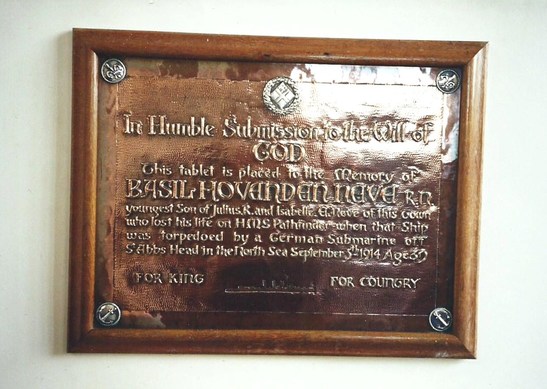 In Humble Submission to the Will of
GOD
This tablet is placed to the Memory of
BASIL HOVENDEN NEVE R.N.
youngest Son of Julius. K. and Isabelle. E. Neve of this town
who lost his life on H.M.S Pathfinder when that Ship
was torpedoed by a German Submarine off
St Abbs Head in the North Sea September 5th 1914 Age 30
FOR KING FOR COUNTRY